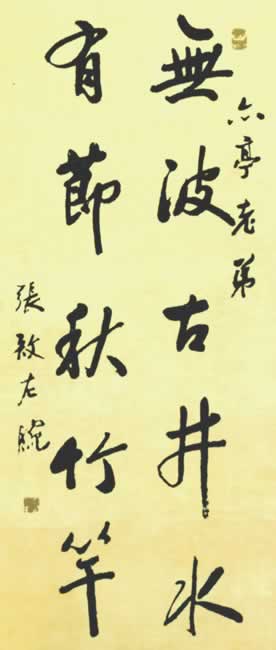 六亭老弟
無波古井水
有節秋竹竿
張敔左腕